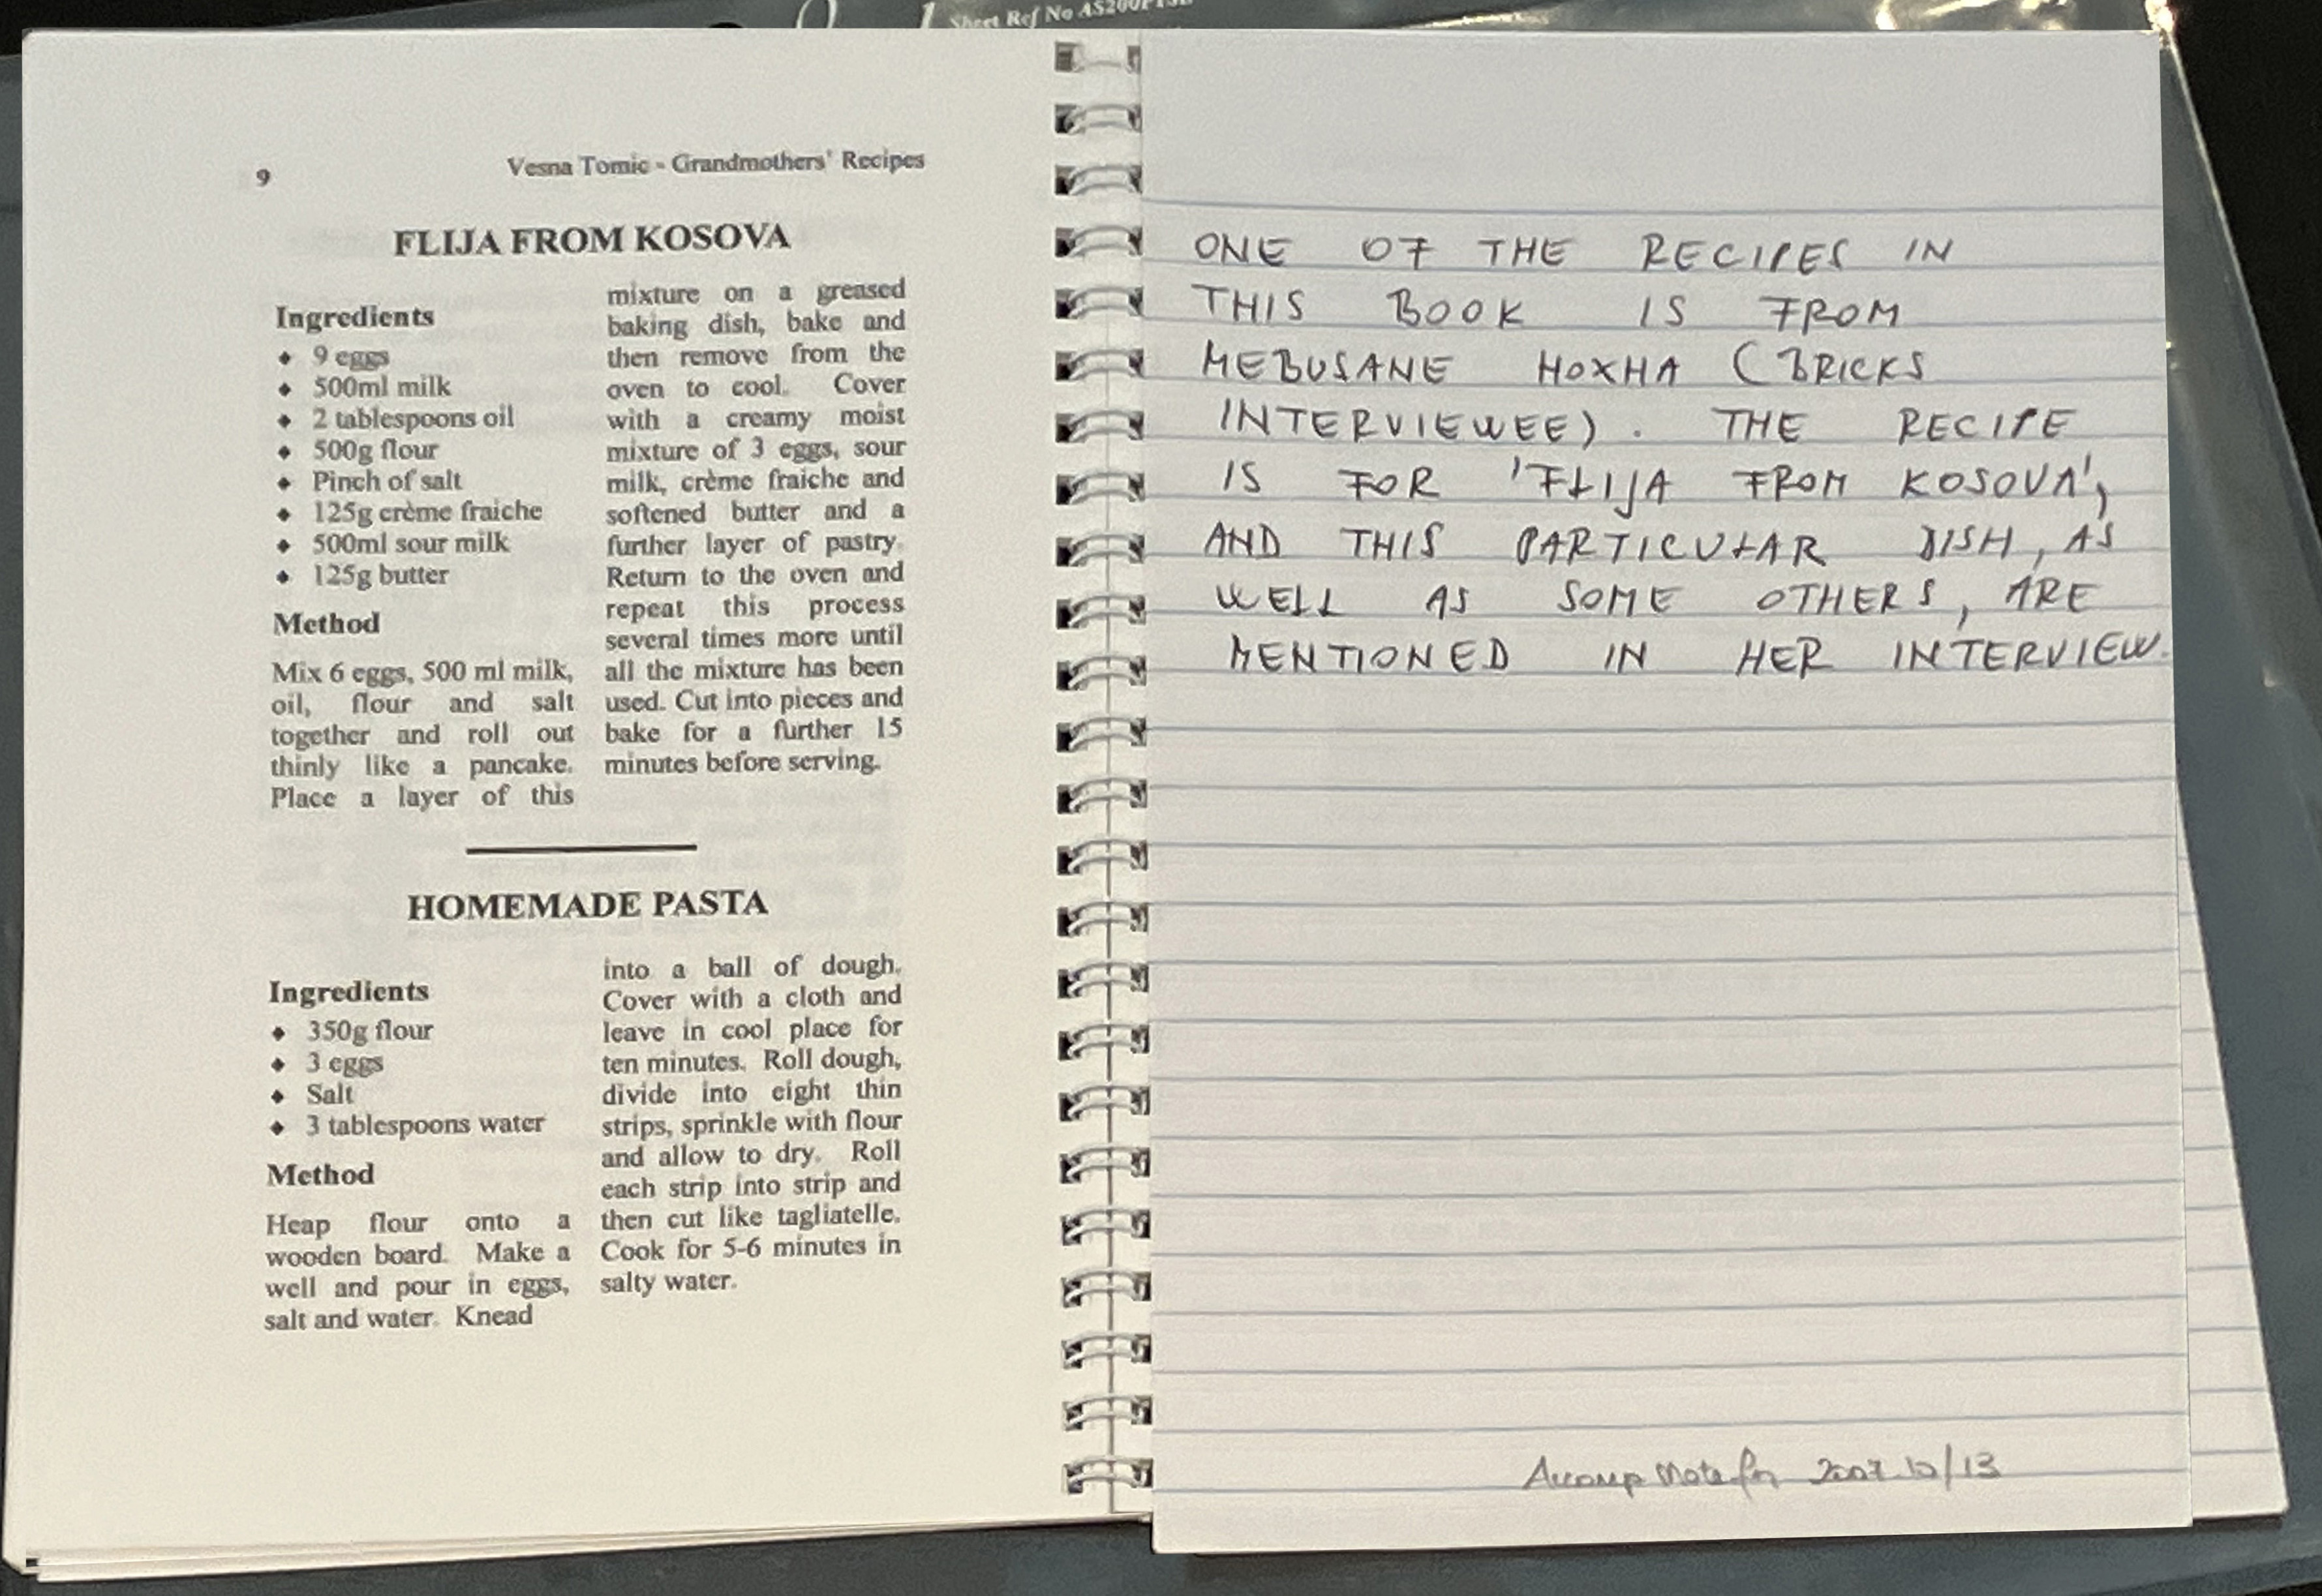 Sheet Ref No
9
Vesna Tomic - Grandmothers' Recipes
FLIJA FROM KOSOVA
Ingredients
♦ 9 eggs
♦ 500ml milk
♦ 2 tablespoons oil
♦ 500g flour
♦ Pinch of salt
♦ 125g crème fraiche
♦ 500ml sour milk
♦ 125g butter
Method
Mix 6 eggs, 500 ml milk,
oil, flour and salt
together and roll out
thinly like a pancake.
Place a layer of this
mixture on a greased
baking dish, bake and
then remove from the
oven to cool. Cover
with a creamy moist
mixture of 3 eggs, sour
milk, crème fraiche and
softened butter and a
further layer of pastry.
Return to the oven and
repeat this process
several times more until
all the mixture has been
used. Cut into pieces and
bake for a further 15
minutes before serving.
HOMEMADE PASTA
Ingredients
♦ 350g flour
♦ 3 eggs
♦ Salt
♦ 3 tablespoons water
Method
Heap flour onto a
wooden board. Make a
well and pour in eggs,
salt and water. Knead
into a ball of dough.
Cover with a cloth and
leave in cool place for
ten minutes. Roll dough,
divide into eight thin
strips, sprinkle with flour
and allow to dry. Roll
each strip into strip and
then cut like tagliatelle.
Cook for 5-6 minutes in
salty water.
ONE OF THE RECIPES IN
THIS BOOK IS FROM
MEBUSANE HOXHA (BRICKS
INTERVIEWEE). THE RECIPE
IS FOR 'FLIJA FROM KOSOVA',
AND THIS PARTICULAR DISH, AS
WELL AS SOME OTHERS, ARE
MENTIONED IN HER INTERVIEW.
Accomp Note for 2007.10/13